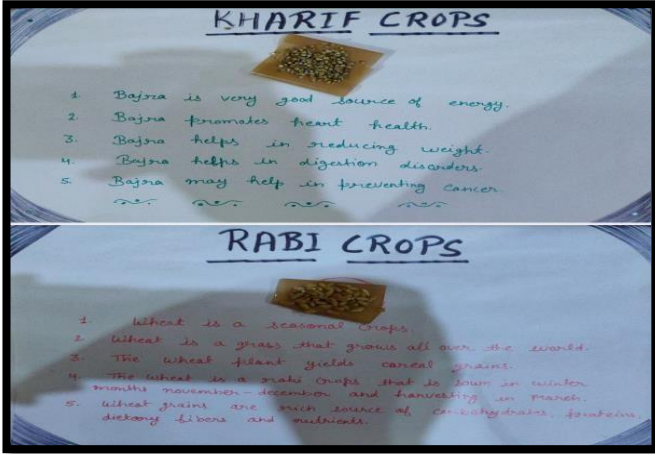 KHARIF CROPS
1. Bajra is very good source of energy.
2. Bajra promotes heart health.
3. Bajra helps in reducing weight.
4. Bajra helps in digestion disorders.
5. Bajra may help in preventing cancer.
RABI CROPS
1. Wheat is a seasonal crops.
2. Wheat is a grass that grows all over the world.
3. The wheat plant yields cereal grains.
4. The wheat is a rabi crops that is sown in winter
months november - december and harvesting in march.
5. Wheat grains are rich source of carbohydrates, proteins,
dietary fibers and nutrients.